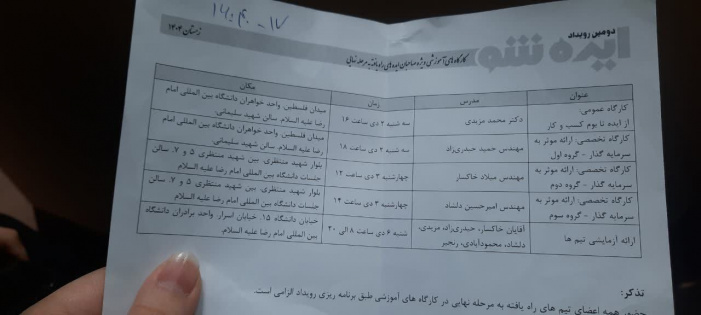 ۱۴:۳۰ - ۱۷
دومین رویداد
ایده شو
زمستان ۱۴۰۴
کارگاه‌های آموزشی ویژه صاحبان ایده‌های راه یافته به مرحله نهایی
عنوان
مدرس
زمان
مکان
کارگاه عمومی:
از ایده تا بوم کسب و کار
دکتر محمد مزیدی
سه شنبه ۲ دی ساعت ۱۶
میدان فلسطین، واحد خواهران دانشگاه بین المللی امام
رضا علیه السلام، سالن شهید سلیمانی
کارگاه تخصصی: ارائه موثر به
سرمایه گذار - گروه اول
مهندس حمید حیدری‌زاد
سه شنبه ۲ دی ساعت ۱۸
میدان فلسطین، واحد خواهران دانشگاه بین المللی امام
رضا علیه السلام، سالن شهید سلیمانی
کارگاه تخصصی: ارائه موثر به
سرمایه گذار - گروه دوم
مهندس میلاد خاکسار
چهارشنبه ۳ دی ساعت ۱۲
بلوار شهید منتظری، بین شهید منتظری ۵ و ۷، سالن
جلسات دانشگاه بین المللی امام رضا علیه السلام
کارگاه تخصصی: ارائه موثر به
سرمایه گذار - گروه سوم
مهندس امیرحسین دلشاد
چهارشنبه ۳ دی ساعت ۱۴
بلوار شهید منتظری، بین شهید منتظری ۵ و ۷، سالن
جلسات دانشگاه بین المللی امام رضا علیه السلام
ارائه آزمایشی تیم ها
آقایان خاکسار، حیدری‌زاد، مزیدی،
دلشاد، محمودآبادی، رنجبر
شنبه ۶ دی ساعت ۸ الی ۲۰
خیابان دانشگاه ۱۵، خیابان اسرار، واحد برادران دانشگاه
بین المللی امام رضا علیه السلام
تذکر:
حضور همه اعضای تیم های راه یافته به مرحله نهایی در کارگاه های آموزشی طبق برنامه ریزی رویداد الزامی است.